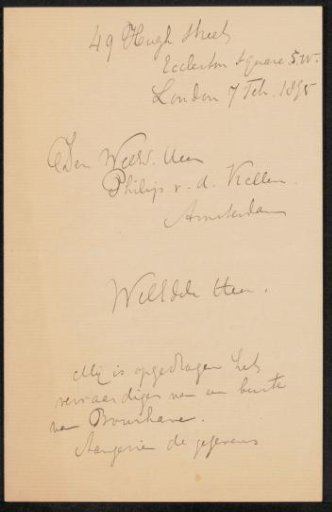 49 Hugh Street
Eccleston Square S.W.
London 7 Feb. 1895
Den WelEd. Heer
Philip v. d. Kellen.
Amsterdam
WelEdele Heer.
Mij is opgedragen het
vervaardigen van een buste
van Boerhave.
Aangezien de gegevens